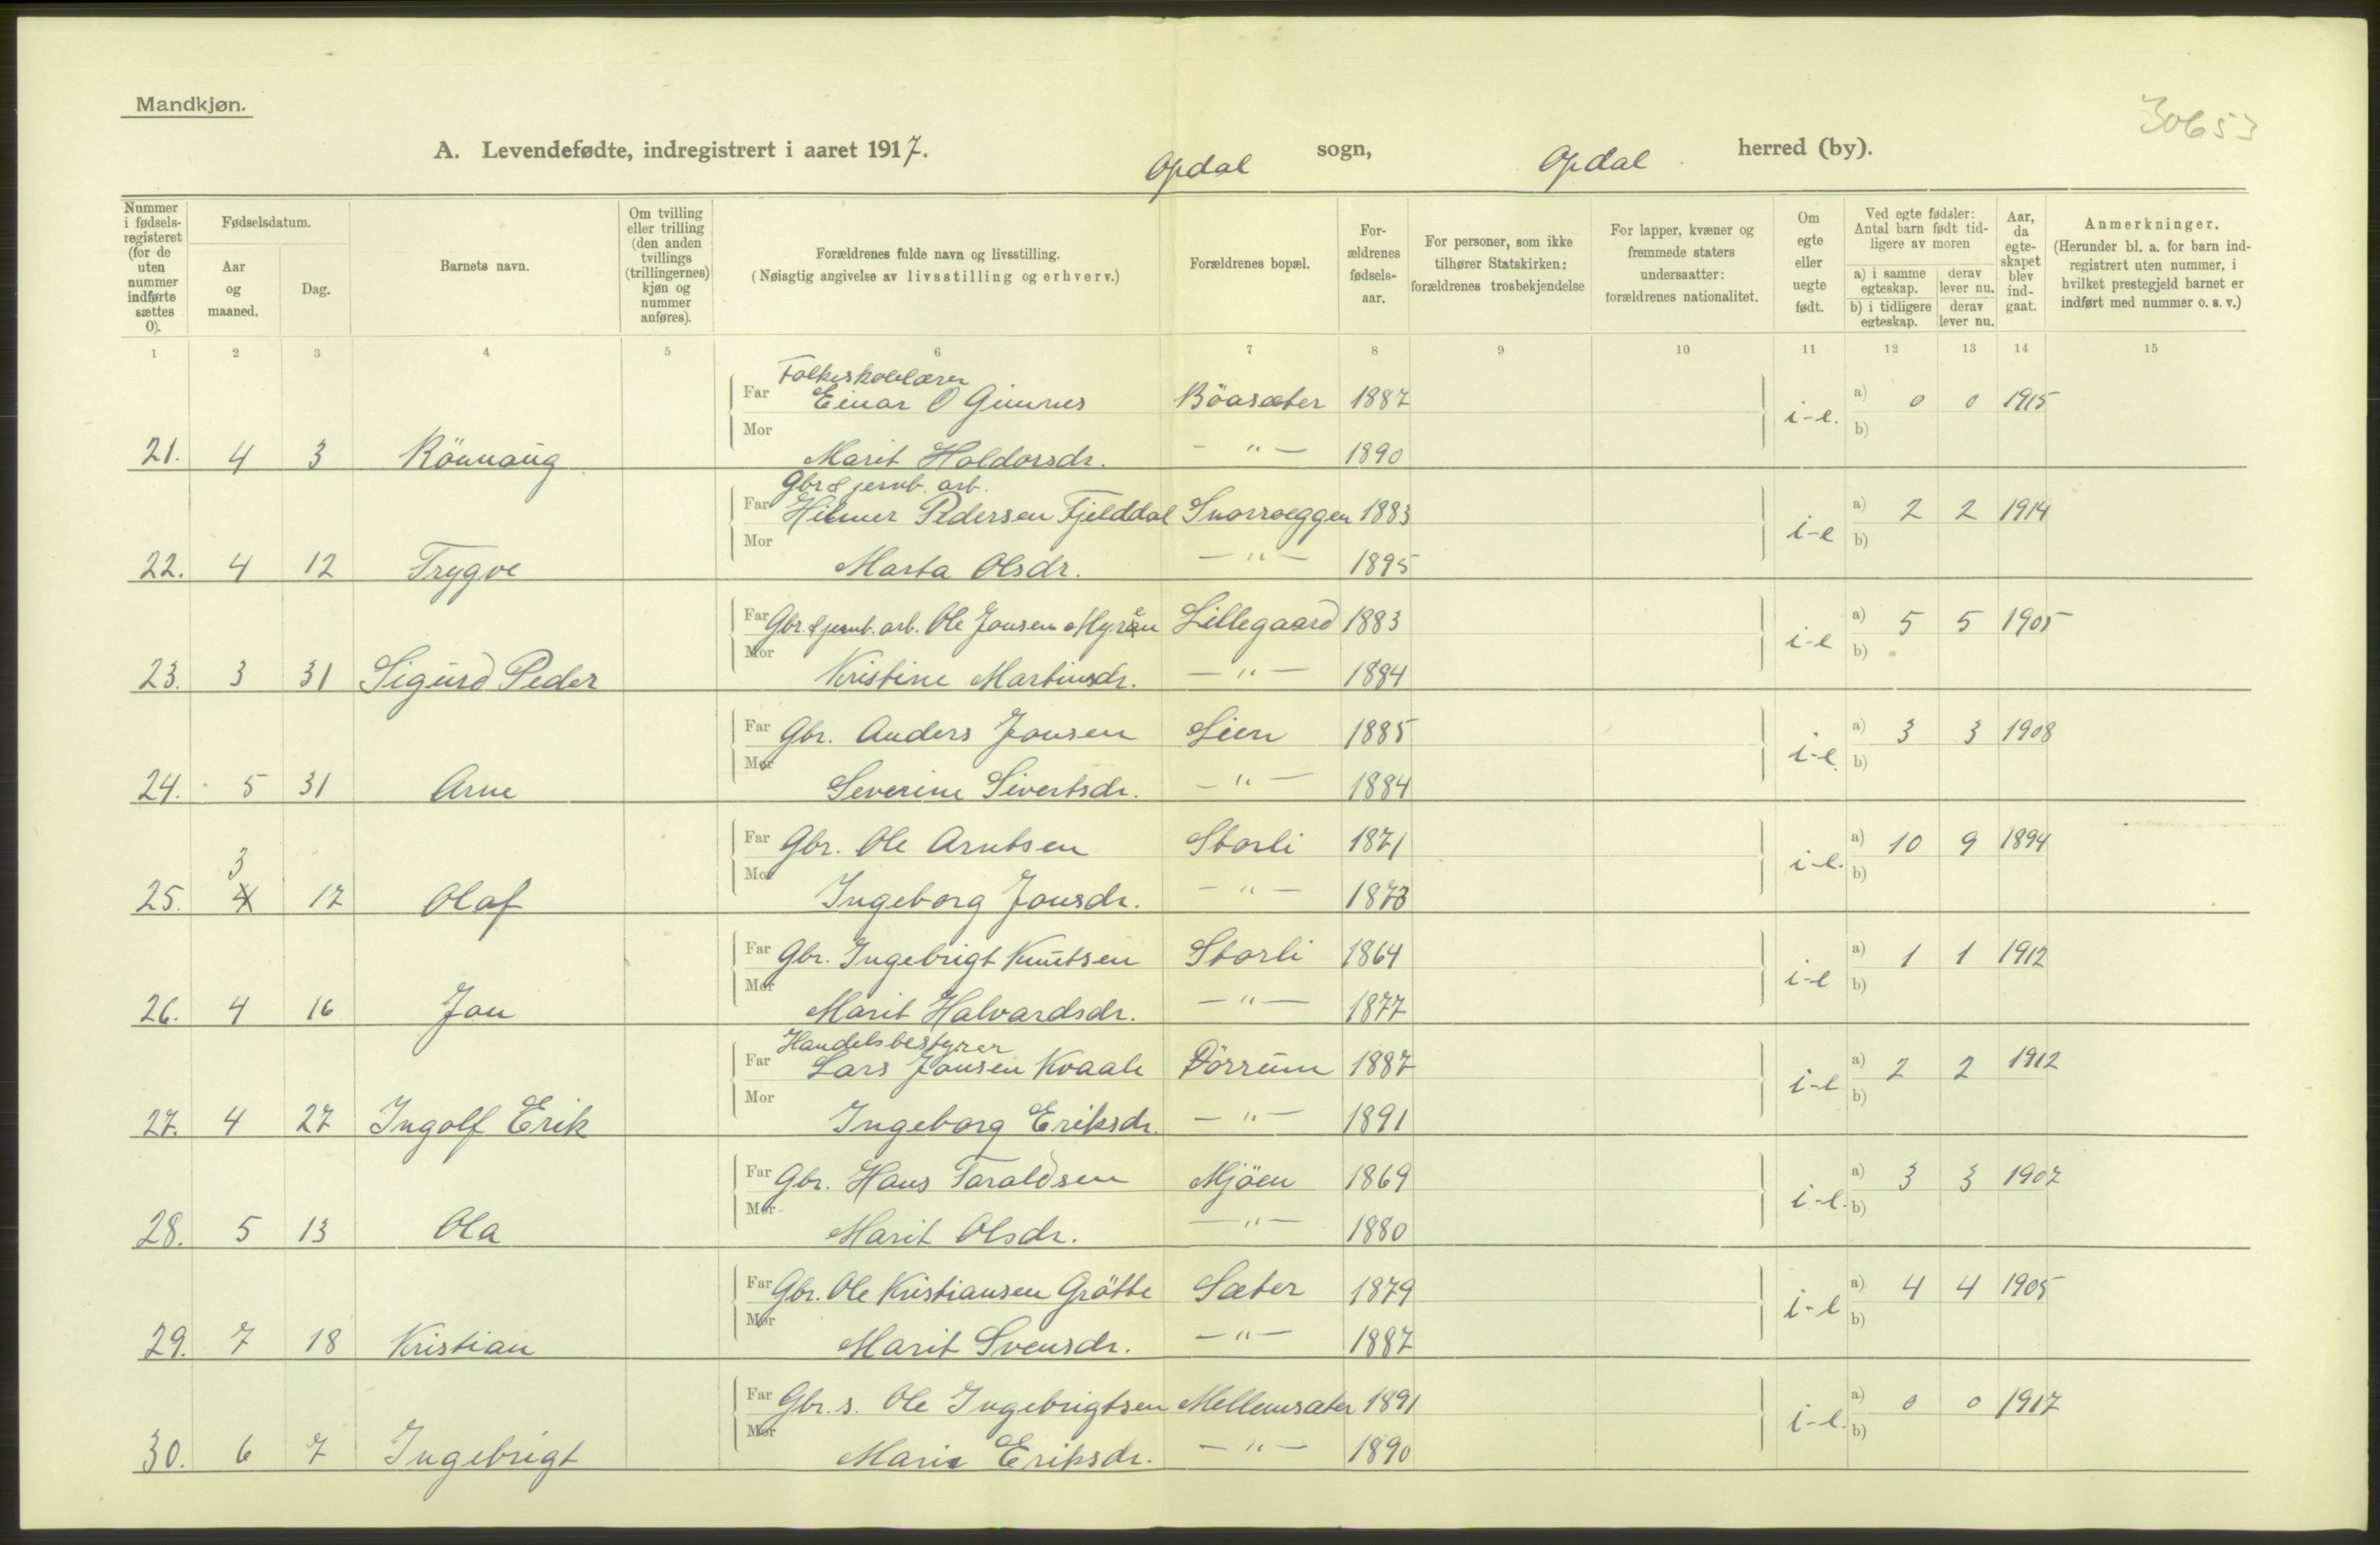 Mandkjøn.
30653
A. Levendefødte, indregistrert i aaret 1917. Opdal sogn, Opdal herred (by).
Nummer i fødselsregisteret (for de uten nummer indførte sættes 0).
Fødselsdatum.
Aar og maaned.
Dag.
Barnets navn.
Om tvilling eller trilling (den anden tvillings (trillingernes) kjøn og nummer anføres).
Forældrenes fulde navn og livsstilling.
(Nøiagtig angivelse av livsstilling og erhverv.)
Forældrenes bopæl.
Forældrenes fødselsaar.
For personer, som ikke tilhører Statskirken: forældrenes trosbekjendelse
For lapper, kvæner og fremmede staters undersaatter: forældrenes nationalitet.
Om egte eller uegte født.
Ved egte fødsler: Antal barn født tidligere av moren
a) i samme egteskap. derav lever nu.
b) i tidligere egteskap. derav lever nu.
Aar, da egteskapet blev indgaat.
Anmerkninger.
(Herunder bl. a. for barn indregistrert uten nummer, i hvilket prestegjeld barnet er indført med nummer o. s. v.)
1 2 3 4 5 6 7 8 9 10 11 12 13 14 15
Folkeskolelærer
Far Einar O Gimnes Böasæter 1887 i-e. a) 0 0 1915
Mor b)
21. 4 3 Rönnaug Marit Haldorsdr. - " - 1890
Gbr & jernb. arb.
Far Hilmer Pedersen Fjelddal Snorroeggen 1883 i-e a) 2 2 1914
Mor b)
22. 4 12 Trygve Marta Olsdr. - " - 1895
Far Gbr. & jernb. arb. Ole Jonsen Myren Lillegaard 1883 i-e a) 5 5 1905
Mor b)
23. 3 31 Sigurd Peder Kristine Martinsdr. - " - 1884
Far Gbr. Anders Jonsen Lien 1885 i-e. a) 3 3 1908
Mor b)
24. 5 31 Arne Severine Sivertsdr. - " - 1884
Far Gbr. Ole Arntsen Storli 1871 i-e. a) 10 9 1894
3
Mor b)
25. 4 17 Olaf Ingeborg Jonsdr. - " - 1873
Far Gbr. Ingebrigt Knutsen Storli 1864 i-e a) 1 1 1912
Mor b)
26. 4 16 Jon Marit Halvardsdr. - " - 1877
Handelsbestyrer
Far Lars Jonsen Kvaale Dörrum 1887 i-e a) 2 2 1912
Mor b)
27. 4 27 Ingolf Erik Ingeborg Eriksdr. - " - 1891
Far Gbr. Hans Taraldsen Mjöen 1869 i-e. a) 3 3 1907
Mor b)
28. 5 13 Ola Marit Olsdr. - " - 1880
Far Gbr. Ole Kristiansen Grötte Sæter 1879 i-e a) 4 4 1905
Mor b)
29. 7 18 Kristian Marit Svensdr. - " - 1887
Far Gbr. s. Ole Ingebrigtsen Mellemsæter 1891 i-e. a) 0 0 1917
Mor b)
30. 6 7 Ingebrigt Marie Eriksdr. - " - 1890